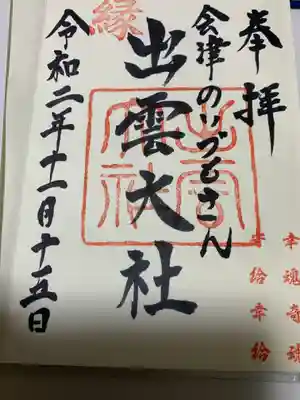 奉拝
会津のいづもさん
出雲大社
縁
令和二年十一月十五日
幸魂奇魂
守給幸給